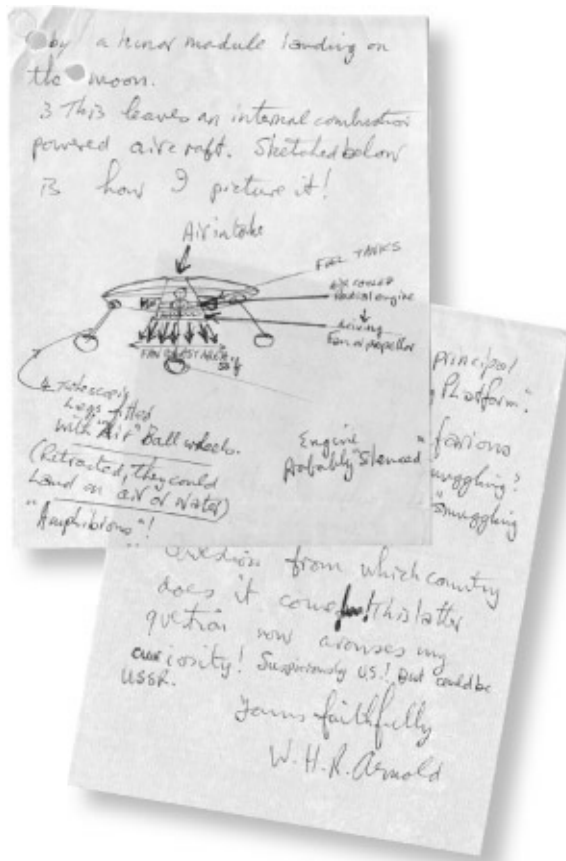 by a lunar module landing on
the moon.
3 This leaves an internal combustion
powered aircraft. Sketched below
is how I picture it!
Air intake
FUEL TANKS
AIR COOLED
Radial engine
driving
Fan or propellor
FAN BLAST AREA
4 telescopic
Legs fitted
with "Air" Ball wheels.
(Retracted, they could
Land on air or water)
"Amphibious"!
Engine
Probably "Silenced"
principal
Platform".
smuggling?
"smuggling
question from which country
does it come! This latter
question now arouses my
curiosity! Suspiciously U.S.! But could be
USSR.
Yours faithfully
W.H.R. Arnold